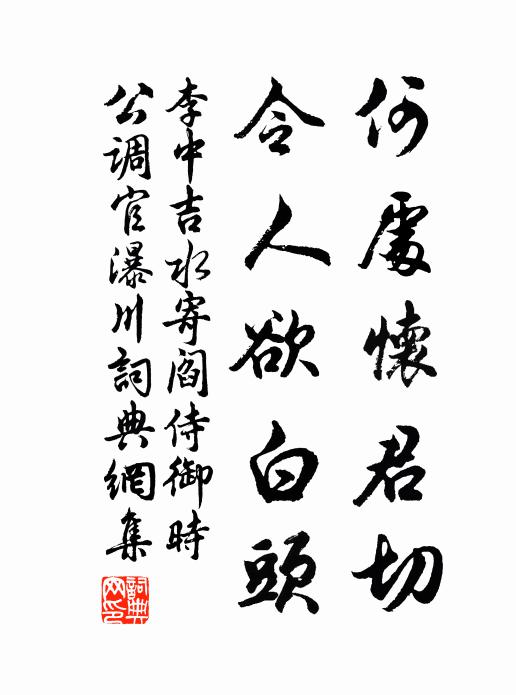 何處懷君切
令人欲白頭
李中吉水寄閻侍御時
公調官瀑川詞典網集
詞典網印